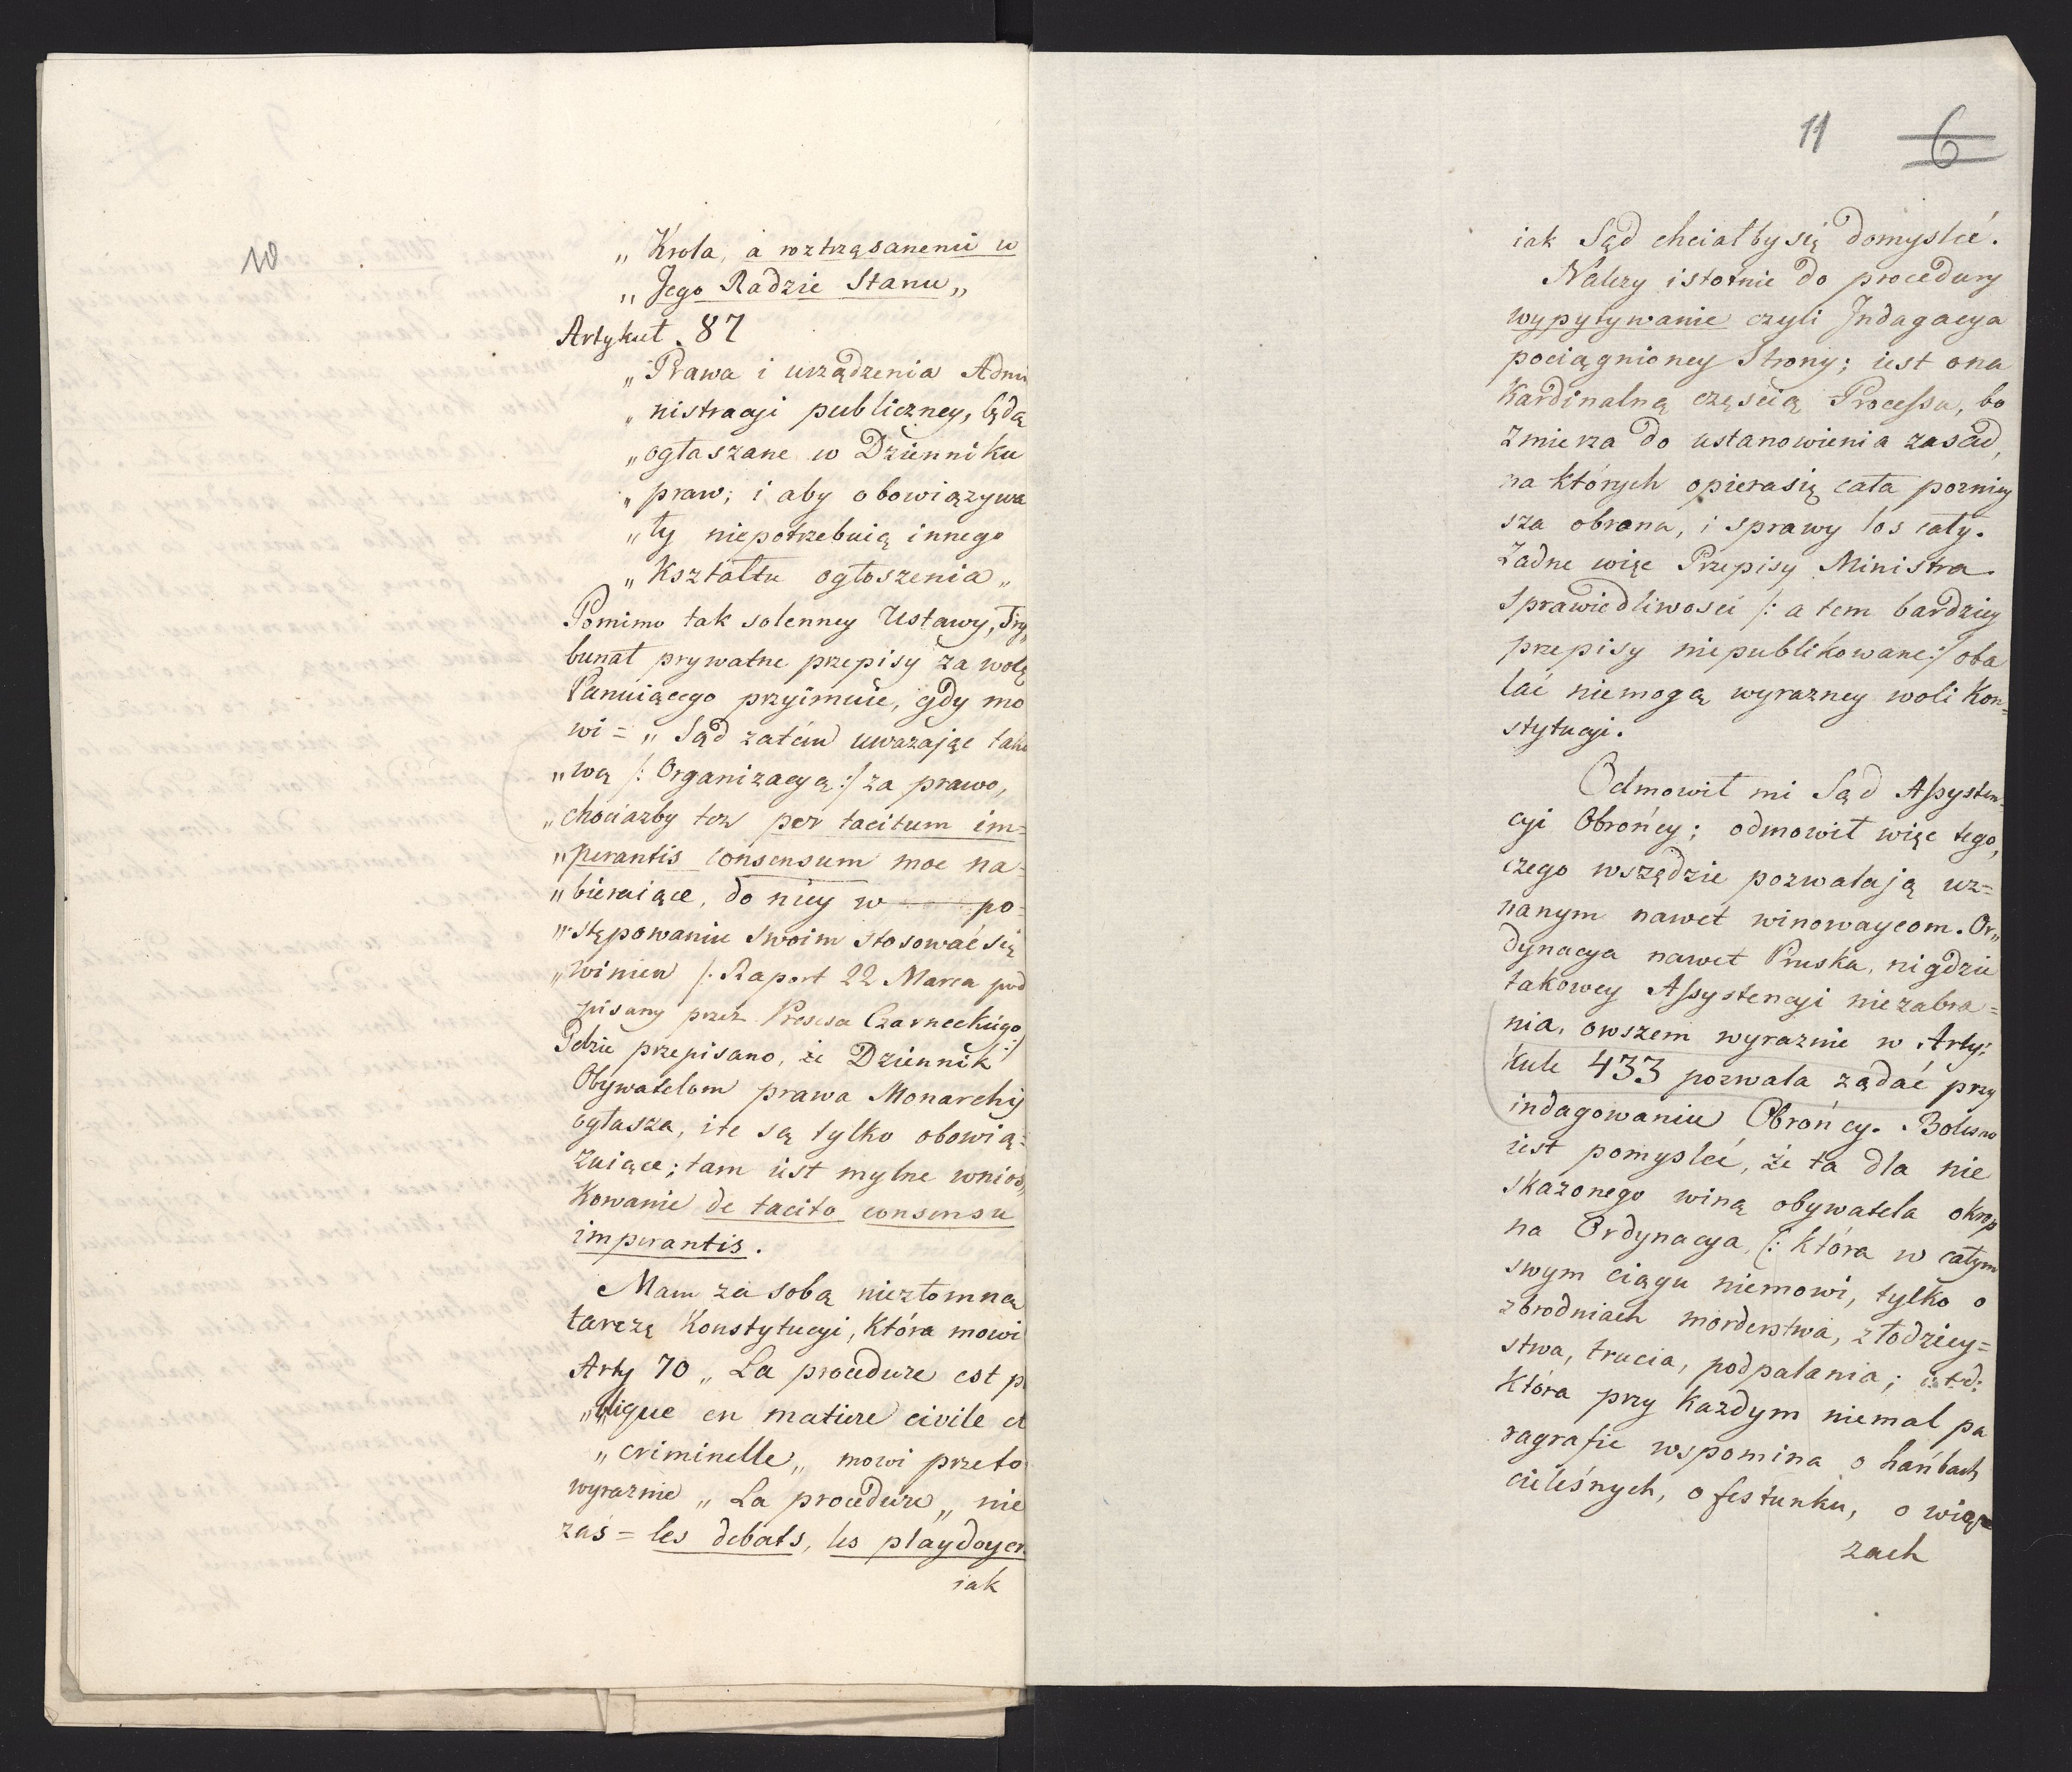 10
„ Krola, a roztrząsaneniu w
„ Jego Radzie Stanu „
Artykuł. 87
„ Prawa i urządzenia Admi
„ nistracyi publiczney, będą
„ ogłaszane w Dzienniku
„ praw; i aby obowiązywa
„ ły niepotrzebuią innego
„ Kształtu ogłoszenia „
Pomimo tak solenney Ustawy, Try„
bunał prywatne przepisy za wolę
Panuiącego przyimuie, gdy mo
wi = „ Sąd zatém uwazając tako
„ wą /: Organizacyą :/ za prawo,
„ chociazby tez per tacitum im=
„ perantis consensum moc na=
„ bieraiące, do niey w po=
„ stępowaniu swoim stosować się
„ winien /: Raport 22 Marca pod
pisany przez Presesa Czarneckiego :/
Gdzie przepisano, że Dziennik
Obywatelom prawa Monarchy
ogłasza, i te są tylko obowią=
zuiące; tam iest mylne wnios„
Kowanie de tacito consensu
imperantis.
Mam za sobą niezłomną
tarczę Konstytucyi, która mowi
Arty 70 „ La procedure est p
„ blique en matiere civile et
„ criminelle „ mowi przeto
wyraznie „ La procedure „ nie
zaś = les debats, les playdoyer
iak
11 6
iak Sąd chciałby się domyslić.
Nalezy istotnie do procedury
wypytywanie czyli Indagacya
pociągnioney Strony; iest ona
Kardinalną częscią Processu, bo
zmierza do ustanowienia zasad,
na których opierasię cała pozniey
sza obrona, i sprawy los cały.
Zadne więc Przepisy Ministra
Sprawiedliwosci /: a tem bardziey
przepisy niepublikowane :/ oba
lać niemogą wyrazney woli Kon=
stytucyi.
Odmowił mi Sąd Assysten=
cyi Obrońcy; odmowił więc tego,
czego wszędzie pozwalają uz=
nanym nawet winowaycom. Or„
dynacya nawet Pruska, nigdzie
takowey Assystencyi niezabra=
nia, owszem wyraznie w Arty:
kule 433 pozwala ządać przy
indagowaniu Obrońcy. Bolesno
iest pomysleć, że ta dla nie
skazonego winą obywatela okrop
na Ordynacya, /: która w całym
swym ciągu niemowi, tylko o
zbrodniach morderstwa, złodziey=
stwa, trucia, podpalania; i.t.d:
Która przy Kazdym niemal pa
ragrafie wspomina o hańbach
cieleśnych, o festunku, o wię
zach